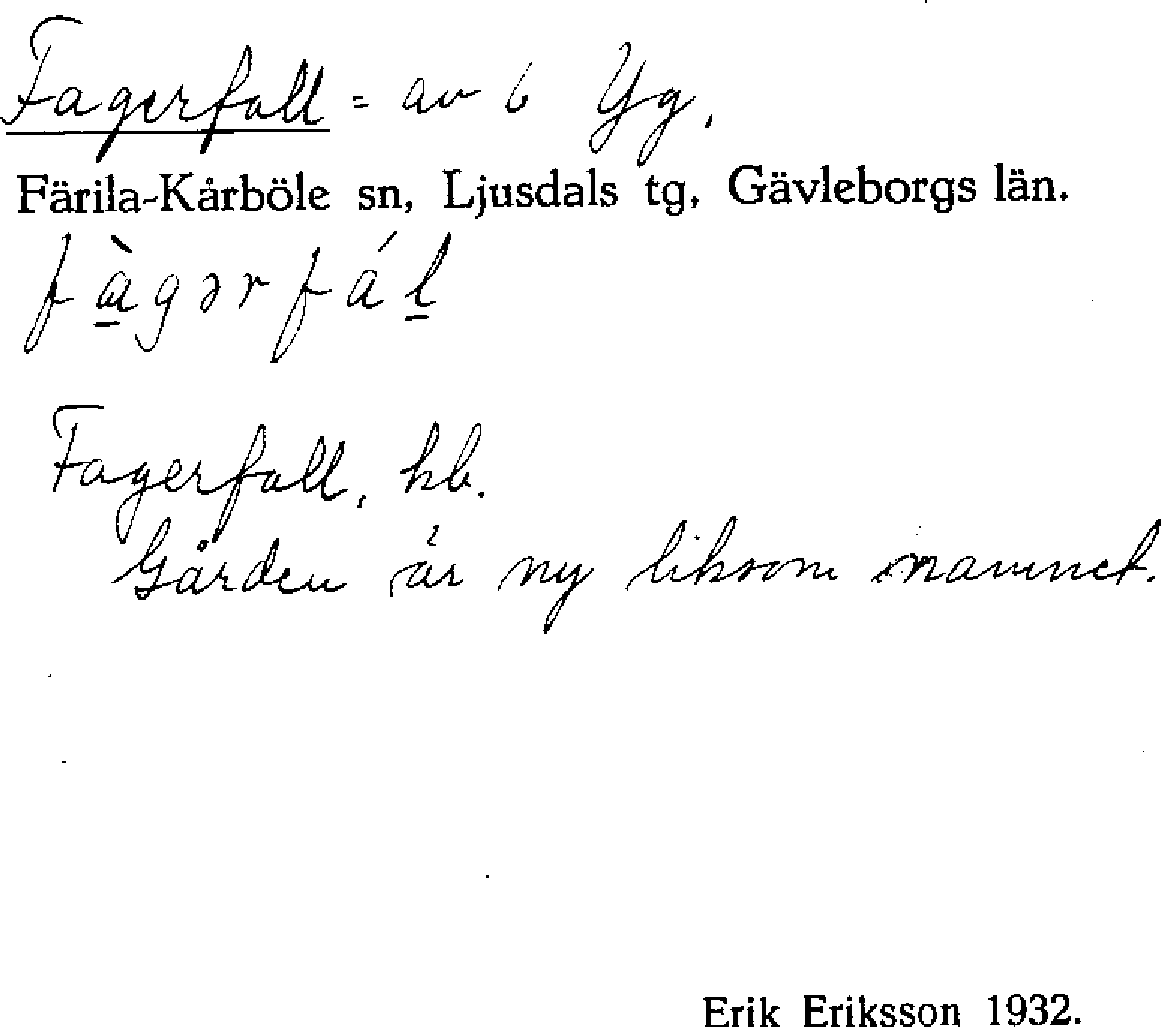 Fagerfall = av 6 Yg.
Färila-Kårböle sn, Ljusdals tg, Gävleborgs län.
fàgərfál
Fagerfall, kb.
Gården är ny liksom namnet.
Erik Eriksson 1932.